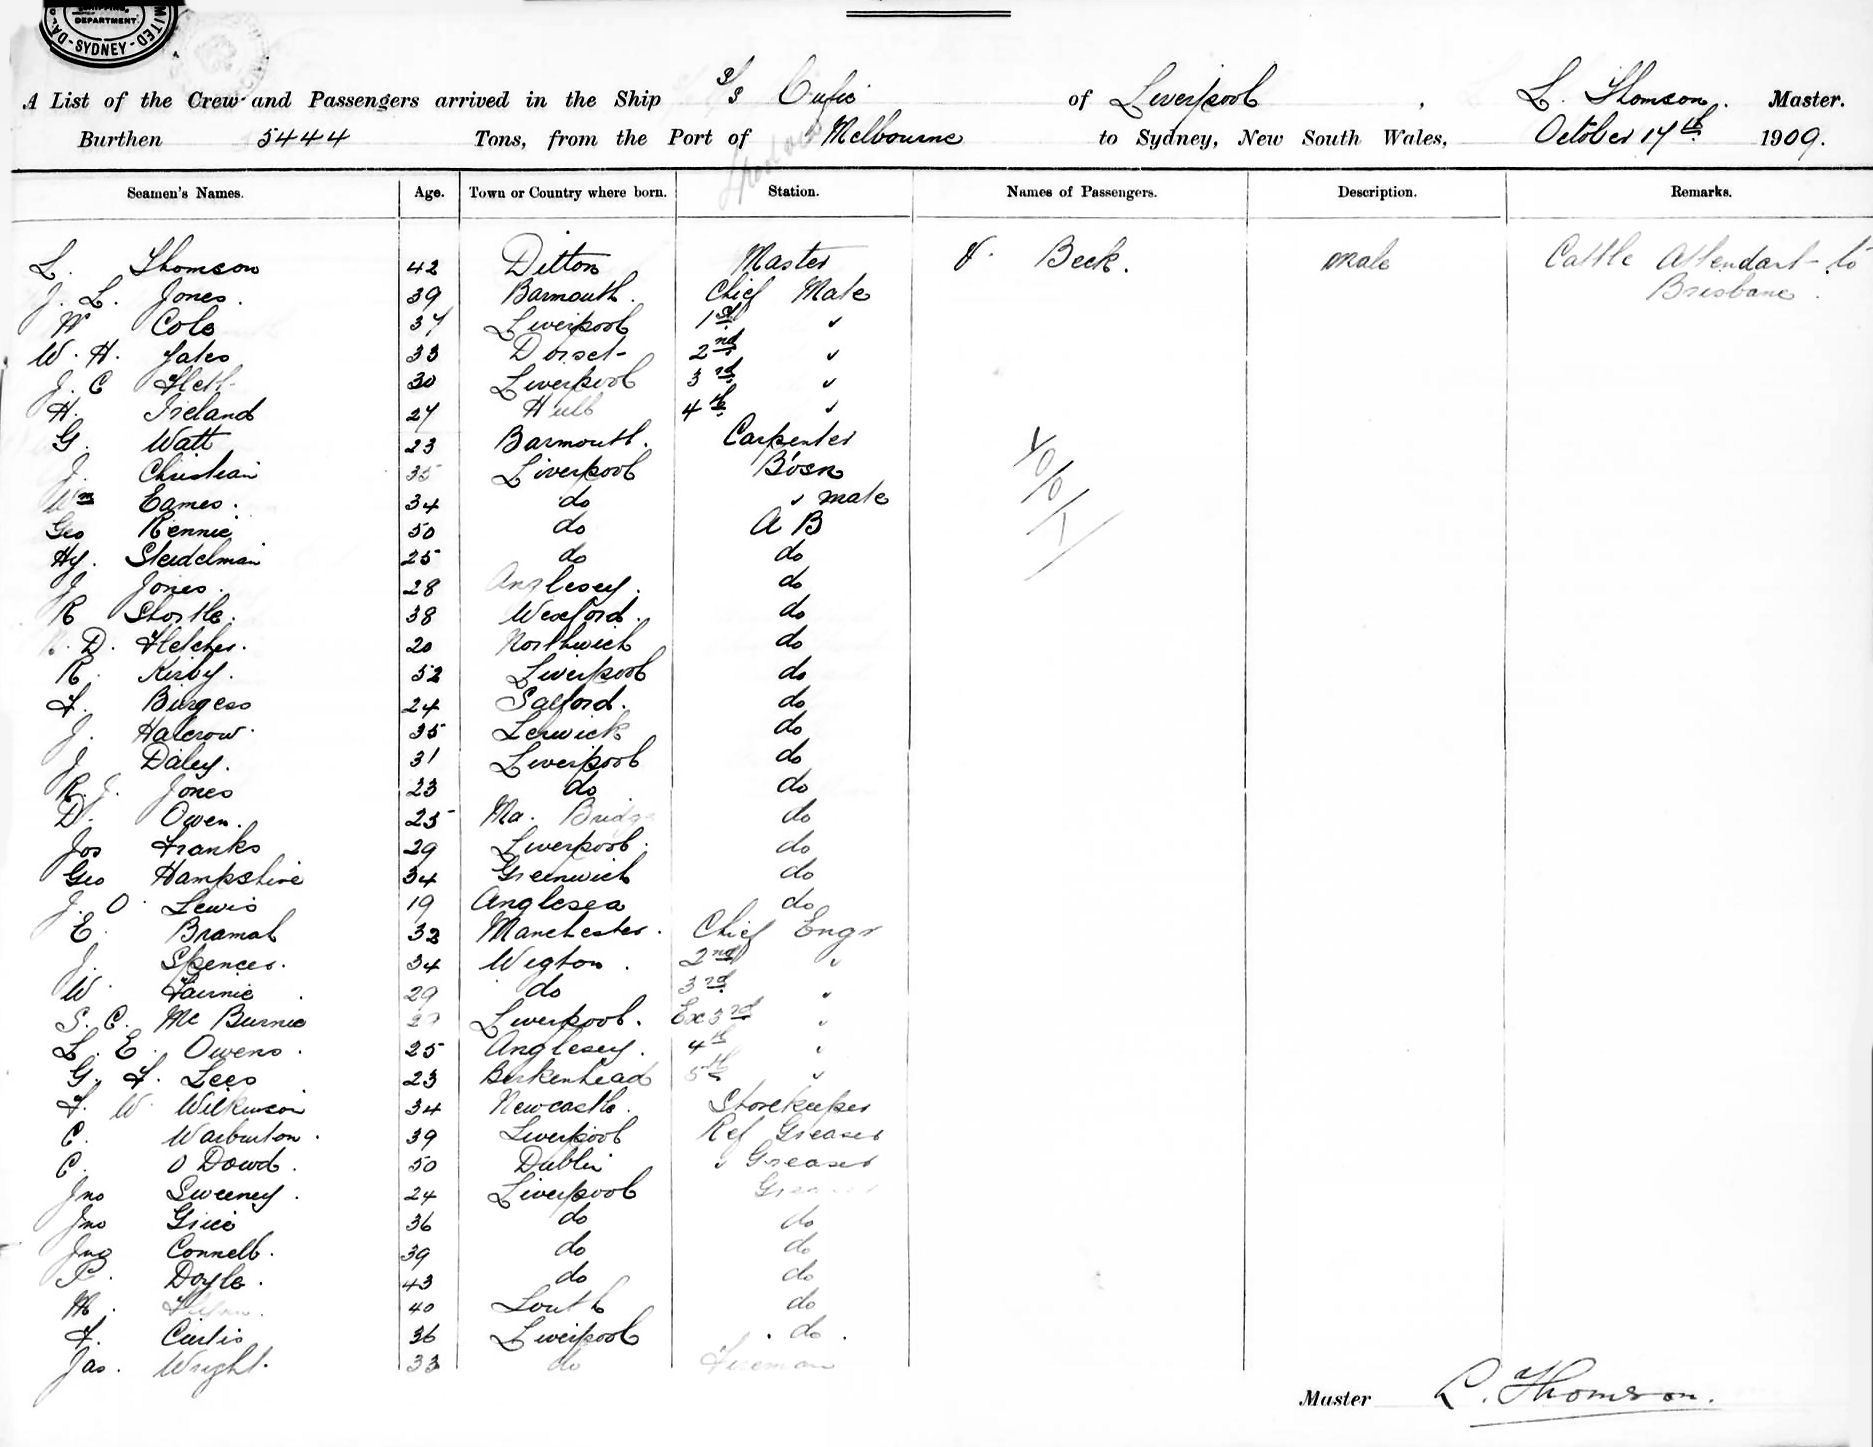 MITED
SHIPPING DEPARTMENT
SYDNEY
A List of the Crew and Passengers arrived in the Ship S/S Cufic of Liverpool, L. Thomson. Master.
Burthen 5444 Tons, from the Port of Melbourne to Sydney, New South Wales, October 17th 1909.
Seamen's Names. Age. Town or Country where born. Station. Names of Passengers. Description. Remarks.
L. Thomson 42 Ditton Master J. Beck. Male Cattle Attendant to
J. L. Jones. 39 Barmouth. Chief Mate Brisbane.
W Cole 37 Liverpool 1st "
W. H. Yates 33 Dorset 2nd "
J. C 30 Liverpool 3rd "
H. Ireland 27 Hull 4th "
G. Watt 23 Barmouth. Carpenter
J. Christian 35 Liverpool Bosn
Wm Eames. 34 do " mate
Geo Rennie 50 do A B
Hy. Steidelman 25 do do
J Jones. 28 Anglesey. do
R Stortle. 38 Wexford. do
D. Fletcher. 20 Northwich do
R. Kirby. 52 Liverpool do
F. Burgess 24 Salford. do
J. Halcrow. 35 Lerwick do
J Daley. 31 Liverpool do
R. J. Jones 23 do do
D. Owen. 25 Ma. Bridge do
Jos Franks 29 Liverpool. do
Geo Hampshire 34 Greenwich do
J. O. Lewis 19 Anglesea do
E. Bramal 32 Manchester. Chief Engr
J. Spencer. 34 Wigton. 2nd "
W. Fairnie. 29 do 3rd "
S. C. Mc Burnie Liverpool. Ex 3rd "
L. E. Owens. 25 Anglesey. 4th "
G. F. Lees 23 Birkenhead 5th "
F. W. Wilkinson 34 Newcastle. Storekeeper
C. Warburton. 39 Liverpool Ref Greaser
C. O Dowd. 50 Dublin " Greaser
Jno Sweeney. 24 Liverpool Greaser
Jno Grice 36 do do
Jno Connell. 39 do do
P. Doyle. 43 do do
M. 40 Louth do
F. Curtis 36 Liverpool do.
Jas. Wright. 33 do Fireman
Master L. Thomson.